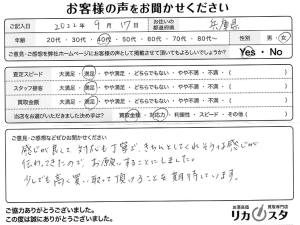 お客様の声をお聞かせください
ご記入日 2022年 9月 17日 お住いの都道府県 兵庫県
年齢 20代・30代・40代・50代・60代・70代・80代〜 性別 男・女
ご意見・ご感想を弊社ホームページにお客様の声として掲載させて頂いてもよろしいでしょうか? Yes・No
査定スピード 大満足・満足・どちらでもない・やや不満・不満・( )
スタッフ接客 大満足・満足・どちらでもない・やや不満・不満・( )
買取金額 大満足・満足・どちらでもない・やや不満・不満・( )
当店をお選びいただきました決め手は? 買取金額・対応力・利便性・スピード・その他( )
ご意見・ご感想などぜひお聞かせください
感じが良くて 対応も丁寧で、きちんとしてくれそうな感じが
伝わってきたので、お願いすることにしました。
少しでも高く買い取って頂けることを期待しています。
ご協力ありがとうございました。
この度は誠にありがとうございました。
お酒高価 買取専門店
リカスタ